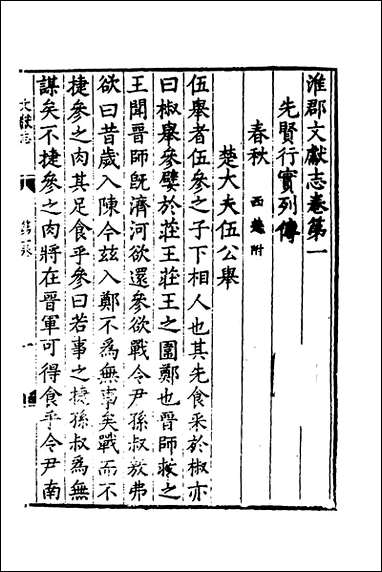 淮郡文獻志卷第一
先賢行實列傳
春秋 西楚附
楚大夫伍公舉
伍舉者伍參之子下相人也其先食采於椒亦
曰椒舉參嬖於莊王莊王之圍鄭也晉師救之
王聞晉師旣濟河欲還參欲戰令尹孫叔敖弗
欲曰昔歲入陳今茲入鄭不爲無事矣戰而不
捷參之肉其足食乎參曰若事之捷孫叔爲無
謀矣不捷參之肉將在晉軍可得食乎令尹南
文獻志
一